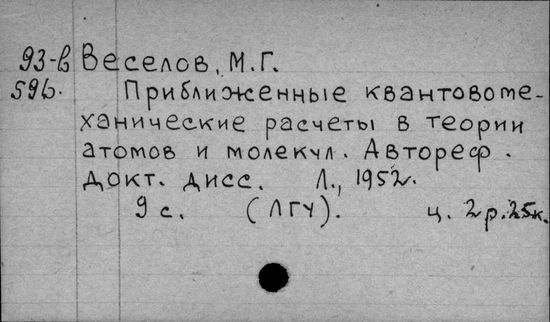 93-в Веселов, М.Г.
596. Приближенные квантовоме-
ханические расчеты в теории
атомов и молекул. Автореф.
докт. дисс. Л., 1952.
9 с. (ЛГУ). ц. 2 р. 25 к.